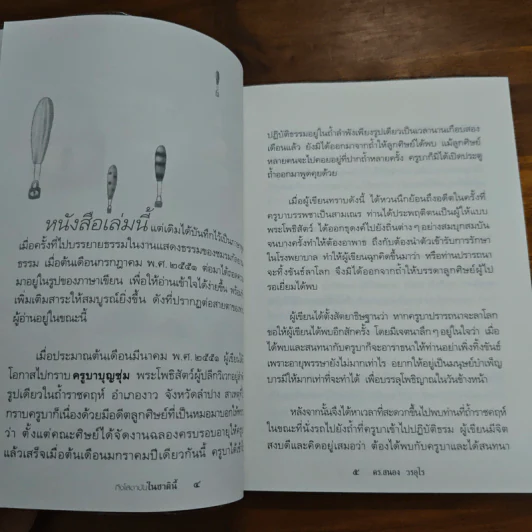 หนังสือเล่มนี้ แต่เดิมได้บันทึกไว้เป็น
เมื่อครั้งที่ไปบรรยายธรรมในงานแสดงธรรมของชมรม
ธรรม เมื่อต้นเดือนกรกฎาคม พ.ศ. ๒๕๕๑ ต่อมาได้ถอด
มาอยู่ในรูปของภาษาเขียน เพื่อให้อ่านเข้าใจได้ง่ายขึ้น พร้อม
เพิ่มเติมสาระให้สมบูรณ์ยิ่งขึ้น ดังที่ปรากฏต่อสายตาของ
ผู้อ่านอยู่ในขณะนี้
เมื่อประมาณต้นเดือนมีนาคม พ.ศ. ๒๕๕๑ ผู้เขียน
โอกาสไปกราบ ครูบาบุญชุ่ม พระโพธิสัตว์ผู้ปลีกวิเวกอยู่
รูปเดียวในถ้ำราชคฤห์ อำเภองาว จังหวัดลำปาง สาเหตุ
กราบครูบาก็เนื่องด้วยมีอดีตลูกศิษย์ที่เป็นหมอมาบอก
ว่า ตั้งแต่คณะศิษย์ได้จัดงานฉลองครบรอบอายุให้
แล้วเสร็จเมื่อต้นเดือนมกราคมปีเดียวกันนี้ ครูบาได้
ในชาตินี้ ๔
ปฏิบัติธรรมอยู่ในถ้ำลำพังเพียงรูปเดียวเป็นเวลานานเกือบสอง
เดือนแล้ว ยังมิได้ออกมาจากถ้ำให้ลูกศิษย์ได้พบ แม้ลูกศิษย์
หลายคนจะไปคอยอยู่ที่ปากถ้ำหลายครั้ง ครูบาก็มิได้เปิดประตู
ถ้ำออกมาพูดคุยด้วย
เมื่อผู้เขียนทราบดังนี้ ได้หวนนึกย้อนถึงอดีตในครั้งที่
ครูบาบรรพชาเป็นสามเณร ท่านได้ประพฤติตนเป็นผู้ให้แบบ
พระโพธิสัตว์ ได้ออกธุดงค์ไปยังถิ่นต่างๆอย่างสมบุกสมบัน
จนบางครั้งทำให้ต้องอาพาธ ถึงกับต้องนำตัวเข้ารับการรักษา
ในโรงพยาบาล ทำให้ผู้เขียนฉุกคิดขึ้นมาว่า หรือท่านปรารถนา
จะทิ้งขันธ์ลาโลก จึงมิได้ออกจากถ้ำให้บรรดาลูกศิษย์ผู้ไป
รอเยี่ยมได้พบ
ผู้เขียนได้ตั้งสัตยาธิษฐานว่า หากครูบาปรารถนาจะลาโลก
ขอให้ผู้เขียนได้พบอีกสักครั้ง โดยมีเจตนาลึกๆอยู่ในใจว่า เมื่อ
ได้พบและสนทนากับครูบาก็จะอาราธนาให้ท่านอย่าเพิ่งทิ้งขันธ์
เพราะอายุพรรษายังไม่มากเท่าไร อยากให้อยู่เป็นมนุษย์บำเพ็ญ
บารมีให้มากเท่าที่จะทำได้ เพื่อบรรลุโพธิญาณในวันข้างหน้า
หลังจากนั้นจึงได้หาเวลาที่สะดวกขึ้นไปพบท่านที่ถ้ำราชคฤห์
ในขณะที่นั่งรถไปยังถ้ำที่ครูบาเข้าไปปฏิบัติธรรม ผู้เขียนมีจิต
สงบดีและคิดอยู่เสมอว่า ต้องได้พบกับครูบาและได้สนทนา
๕ ดร.สนอง วรอุไร